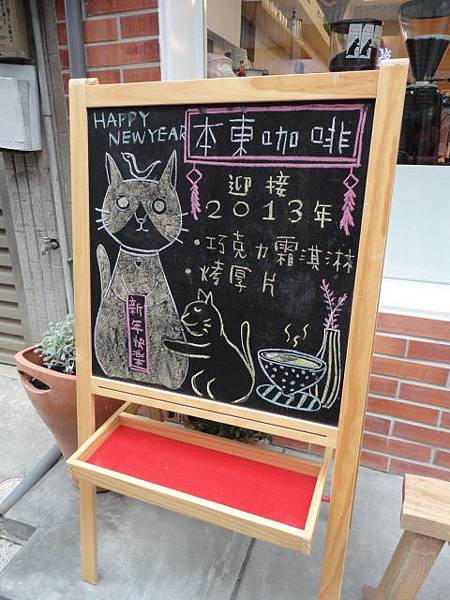 HAPPY
NEW YEAR
本東咖啡
迎接
2013年
·巧克力霜淇淋
·烤厚片
新年快樂